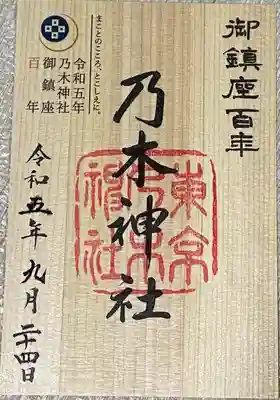 御鎮座百年
乃木神社
東京
乃木
神社
まことのこころ、とこしえに。
令和五年
乃木神社
御鎮座
百年
令和五年 九月 二十四日